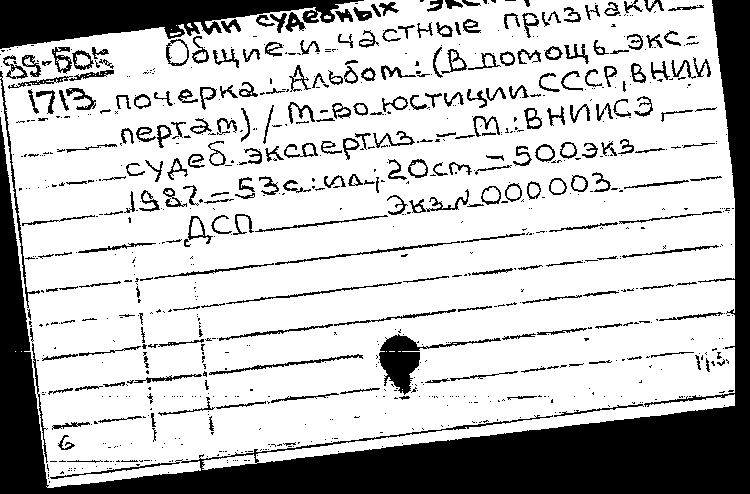 ВНИИ судебных
Общие и частные признаки
89-БОК
1713 почерка: Альбом: (В помощь экс=
пертам) / М-во юстиции СССР, ВНИИ
судеб. экспертиз. – М.: ВНИИСЭ,
1987. – 53с.: ил.; 20см. – 500экз
ДСП Экз. N 000003
6